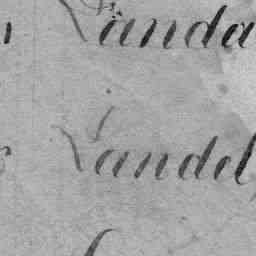 Landa
Landel